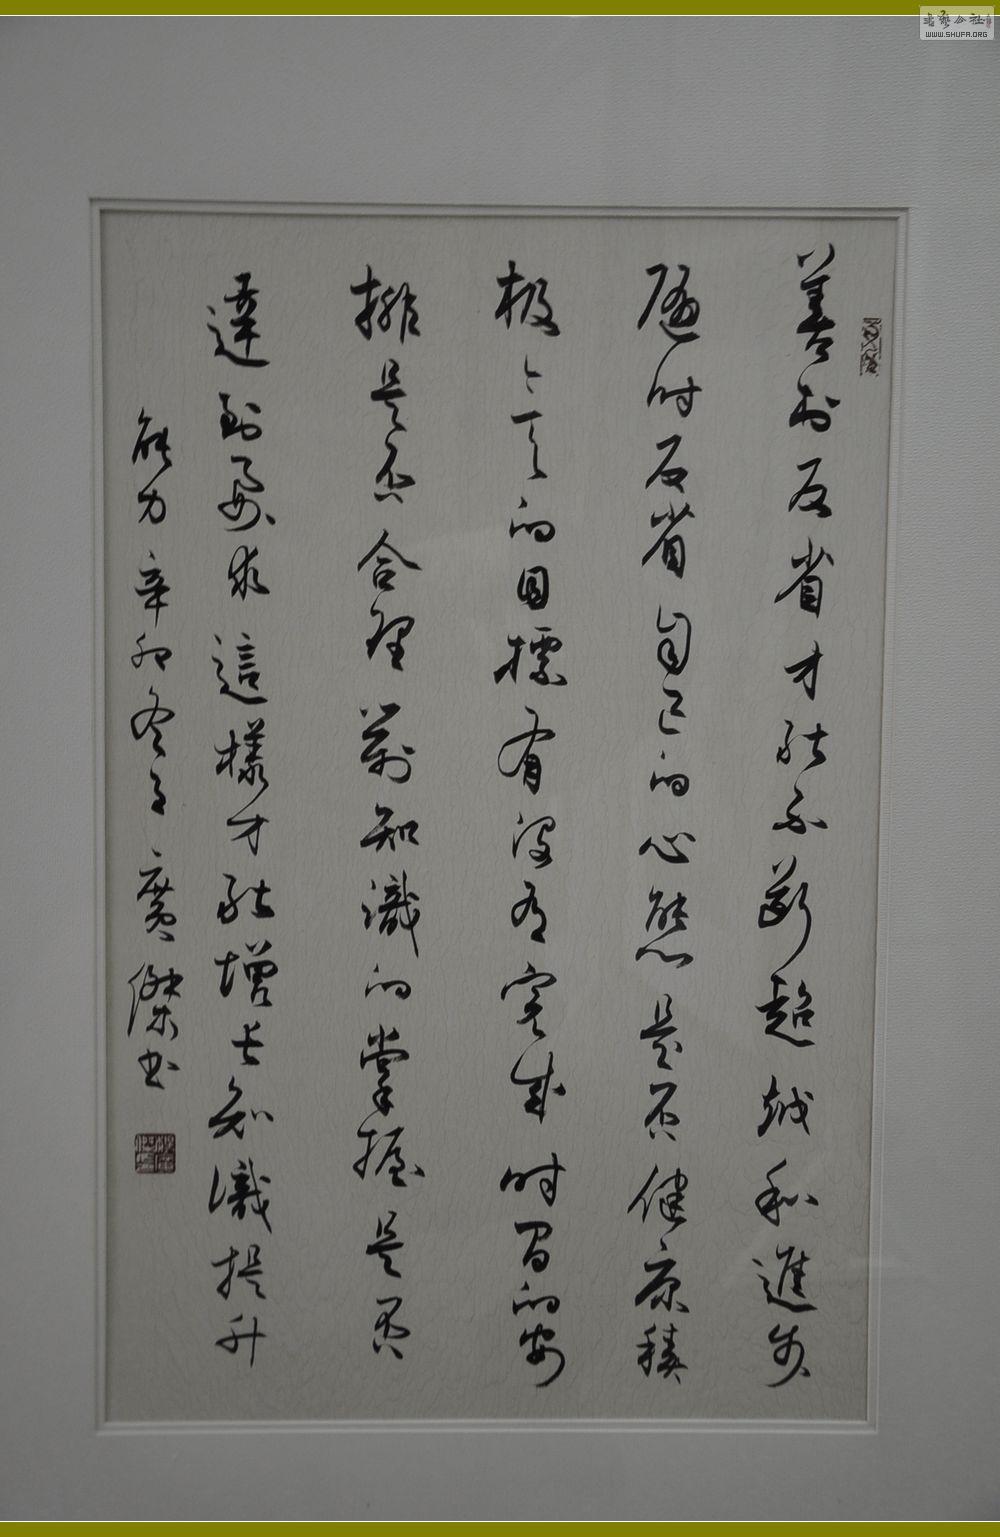 善於反省才能不斷超越和進步
隨时反省自己的心態是否健康積
极今天的目標有没有完成时間的安
排是否合理對知識的掌握是否
達到要求這樣才能增長知識提升
能力 辛卯冬月 廣傑书
书艺公社
WWW.SHUFA.ORG